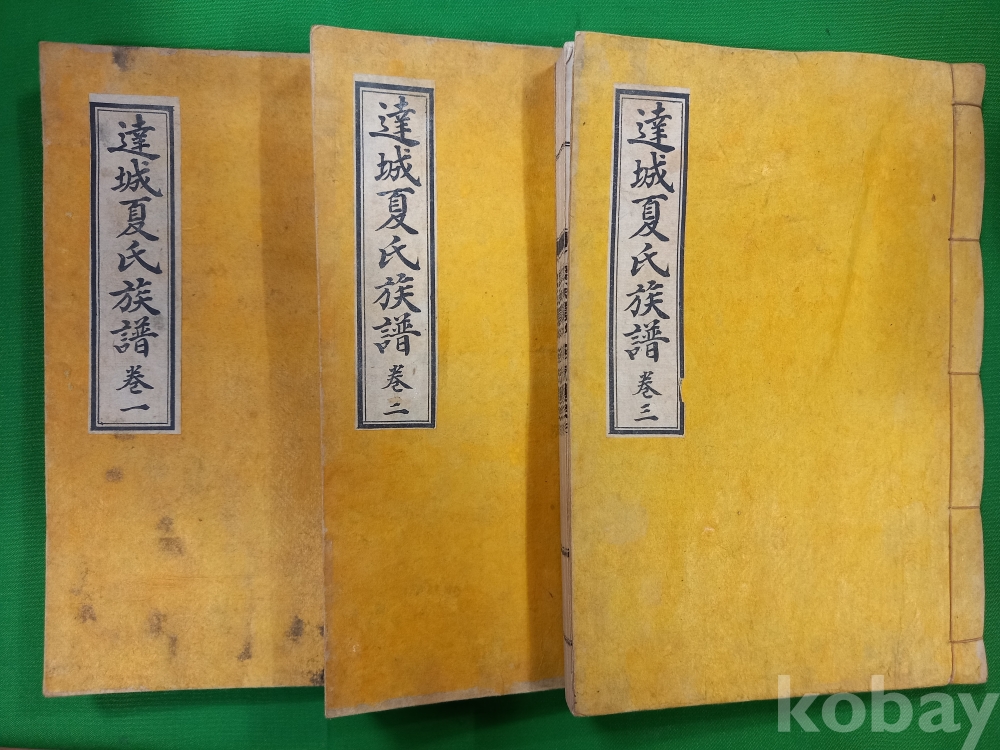 達城夏氏族譜 卷一
達城夏氏族譜 卷二
達城夏氏族譜 卷三
kobay